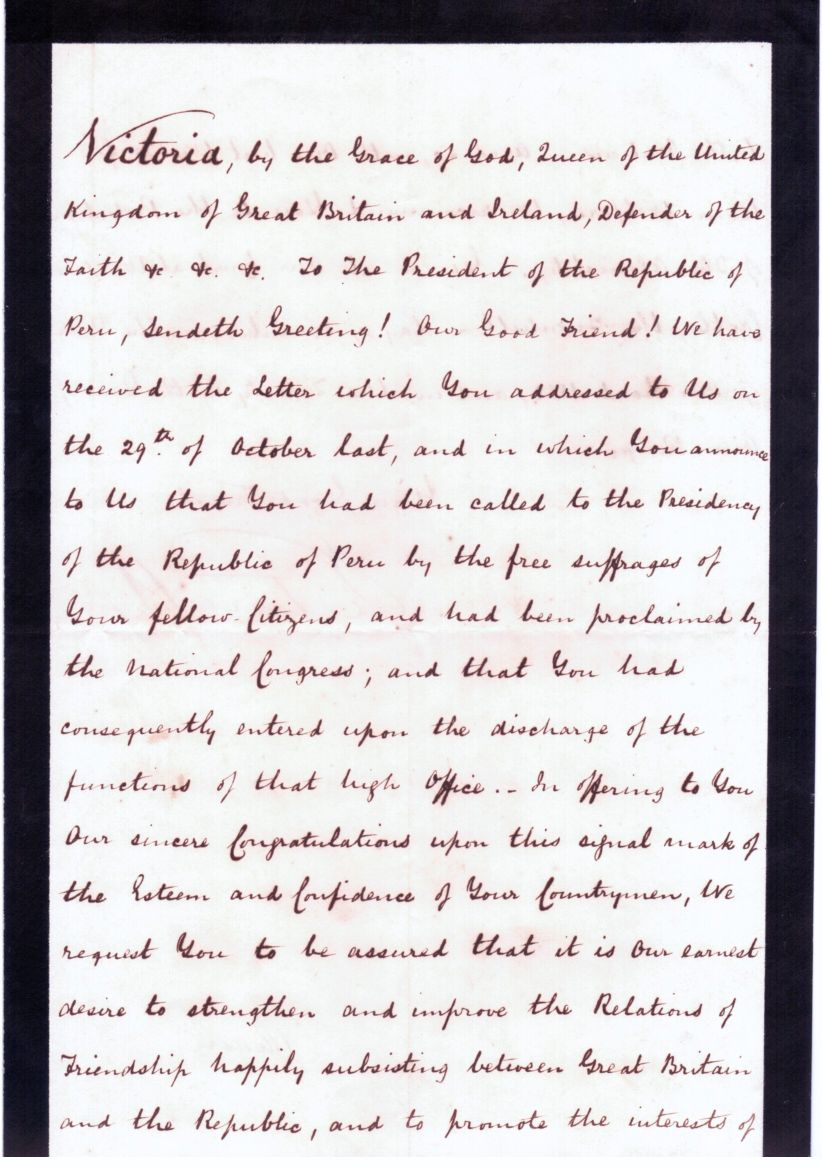 Victoria, by the Grace of God, Queen of the United
Kingdom of Great Britain and Ireland, Defender of the
Faith &c. &c. &c. To The President of the Republic of
Peru, Sendeth Greeting! Our Good Friend! We have
received the Letter which You addressed to Us on
the 29th. of October last, and in which You announce
to Us that You had been called to the Presidency
of the Republic of Peru by the free suffrages of
Your fellow-Citizens, and had been proclaimed by
the National Congress; and that You had
consequently entered upon the discharge of the
functions of that high Office.- In offering to You
Our sincere Congratulations upon this signal mark of
the Esteem and Confidence of Your Countrymen, We
request You to be assured that it is Our earnest
desire to strengthen and improve the Relations of
Friendship happily subsisting between Great Britain
and the Republic, and to promote the interests of